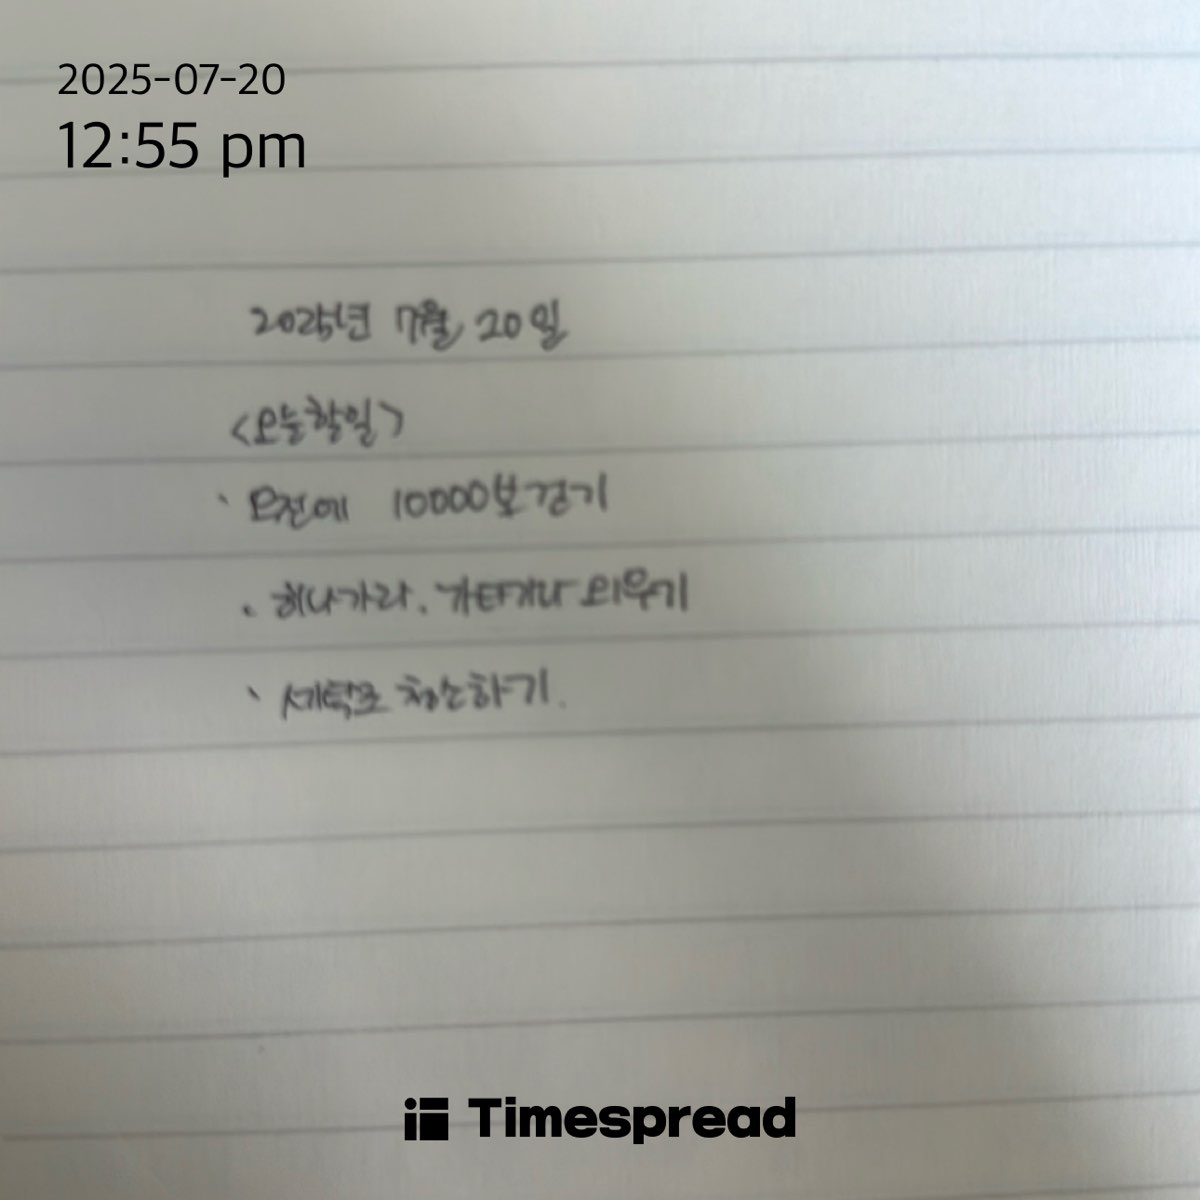 2025-07-20
12:55 pm
2025년 7월 20일
<오늘할일>
· 오전에 10000보 걷기
· 히나가라, 가타가나 외우기
· 세탁조 청소하기.
Timespread